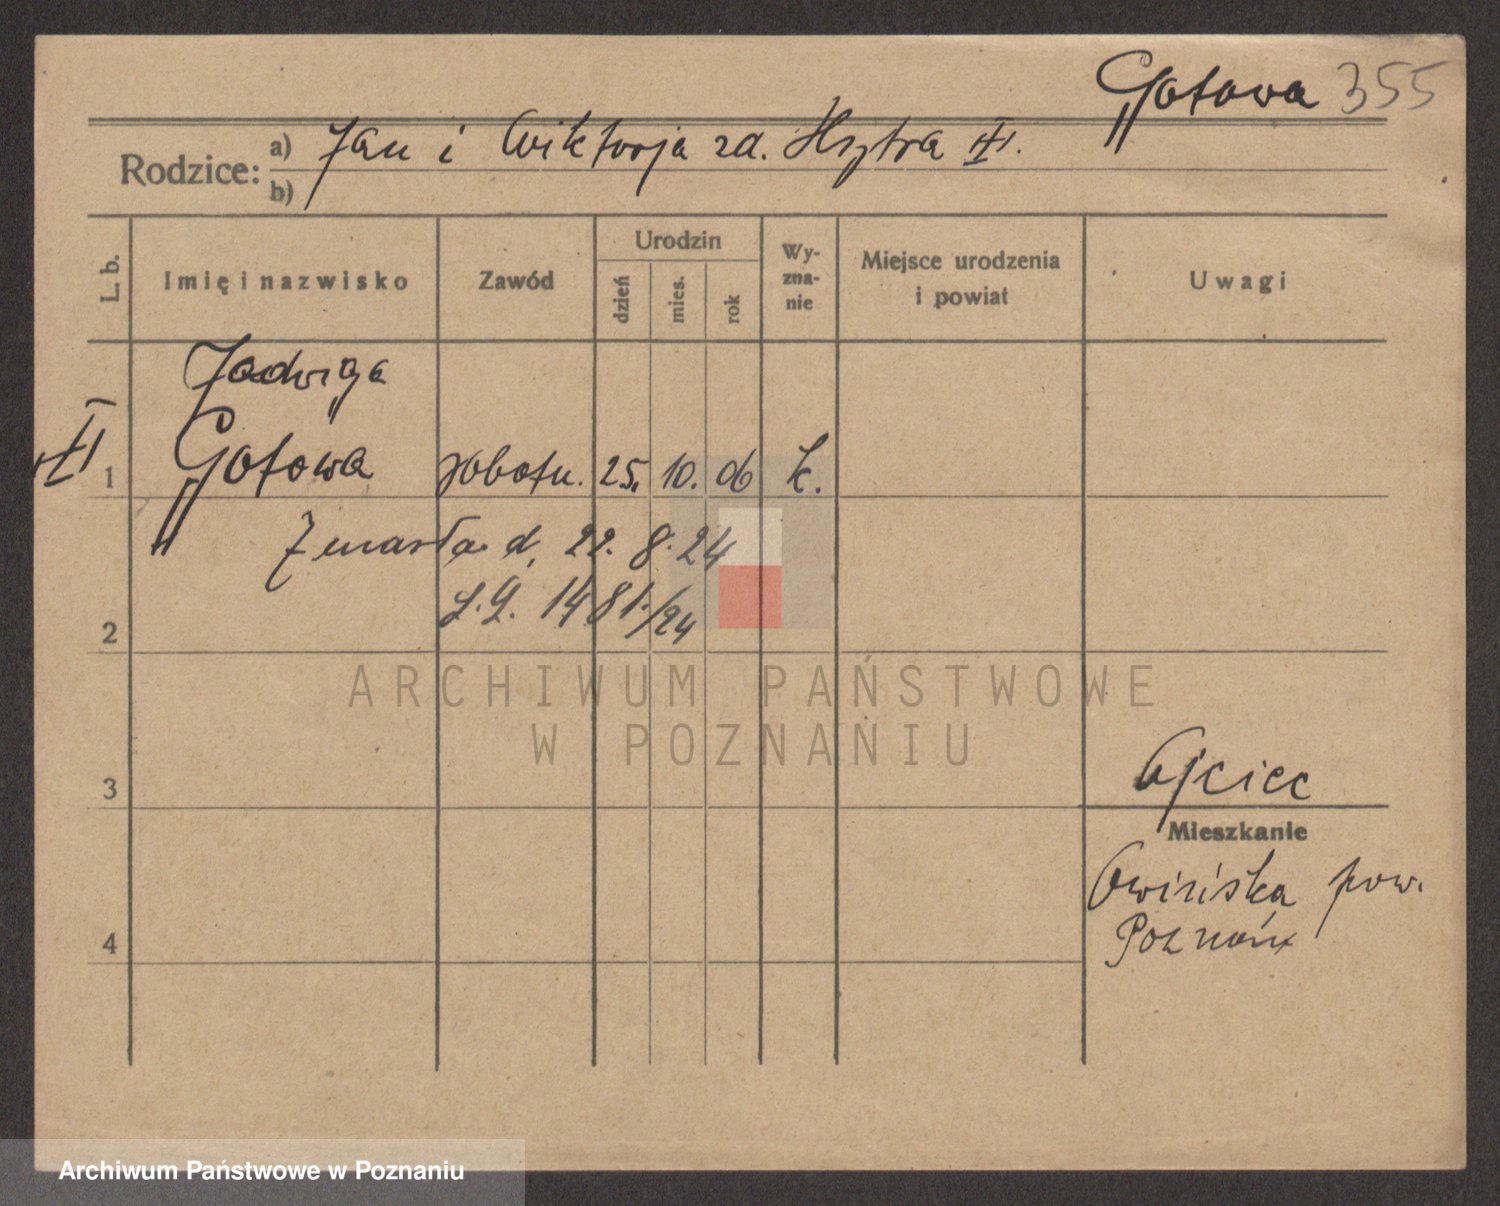 Gotowa 355
Rodzice: a) Jan i Wiktorja zd.
b)
L. b. Imię i nazwisko Zawód Urodzin dzień mies. rok Wy-zna-nie Miejsce urodzenia i powiat Uwagi
Jadwiga
1 Gotowa robotn. 25. 10. 06 k.
Zmarła d. 22. 8. 24
2 1481/24
ARCHIWUM PAŃSTWOWE
W POZNANIU
3 Ojciec
Mieszkanie
Owińska pow.
4 Poznań
Archiwum Państwowe w Poznaniu